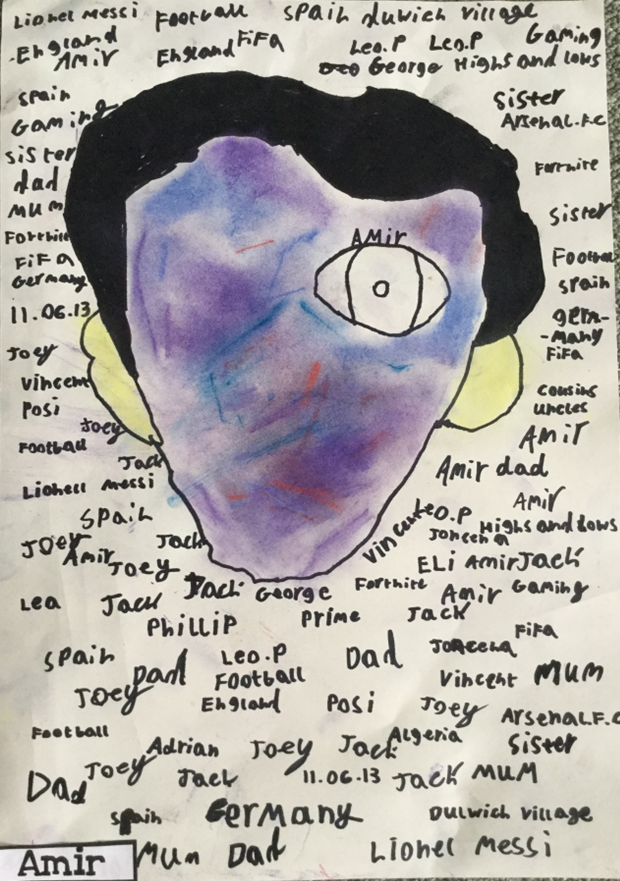 Lionel Messi Football Spain Dulwich village
England FiFA Leo.P Leo.P Gaming
Amir England George Highs and lows
Spain Sister
Gaming Arsenal.F.C
Sister Fortnite
dad
mum Sister
Fortnite
FiFA Football
Germany Spain
AMir
11.06.13 germ-
-many
Joey FiFa
Vincent cousins
Posi uncles
Joey AMir
Football
Jack Amir dad
Lionell messi
Spain Vincent Leo.P Amir
Highs and lows
Joey Jack
Amir Joey ELi Amir Jack
Jack George Fortnite Amir Gaming
Lea Jack Prime Jack
Phillip FiFa
Spain Dad Leo.P Dad
Football Vincent MUM
Joey England Posi Joey
Arsenal.F.C
Football Algeria
Adrian Joey Jack Sister
Joey Jack 11.06.13 Jack MUM
Dad
Spain Germany Dulwich village
Amir Mum Dad Lionel Messi